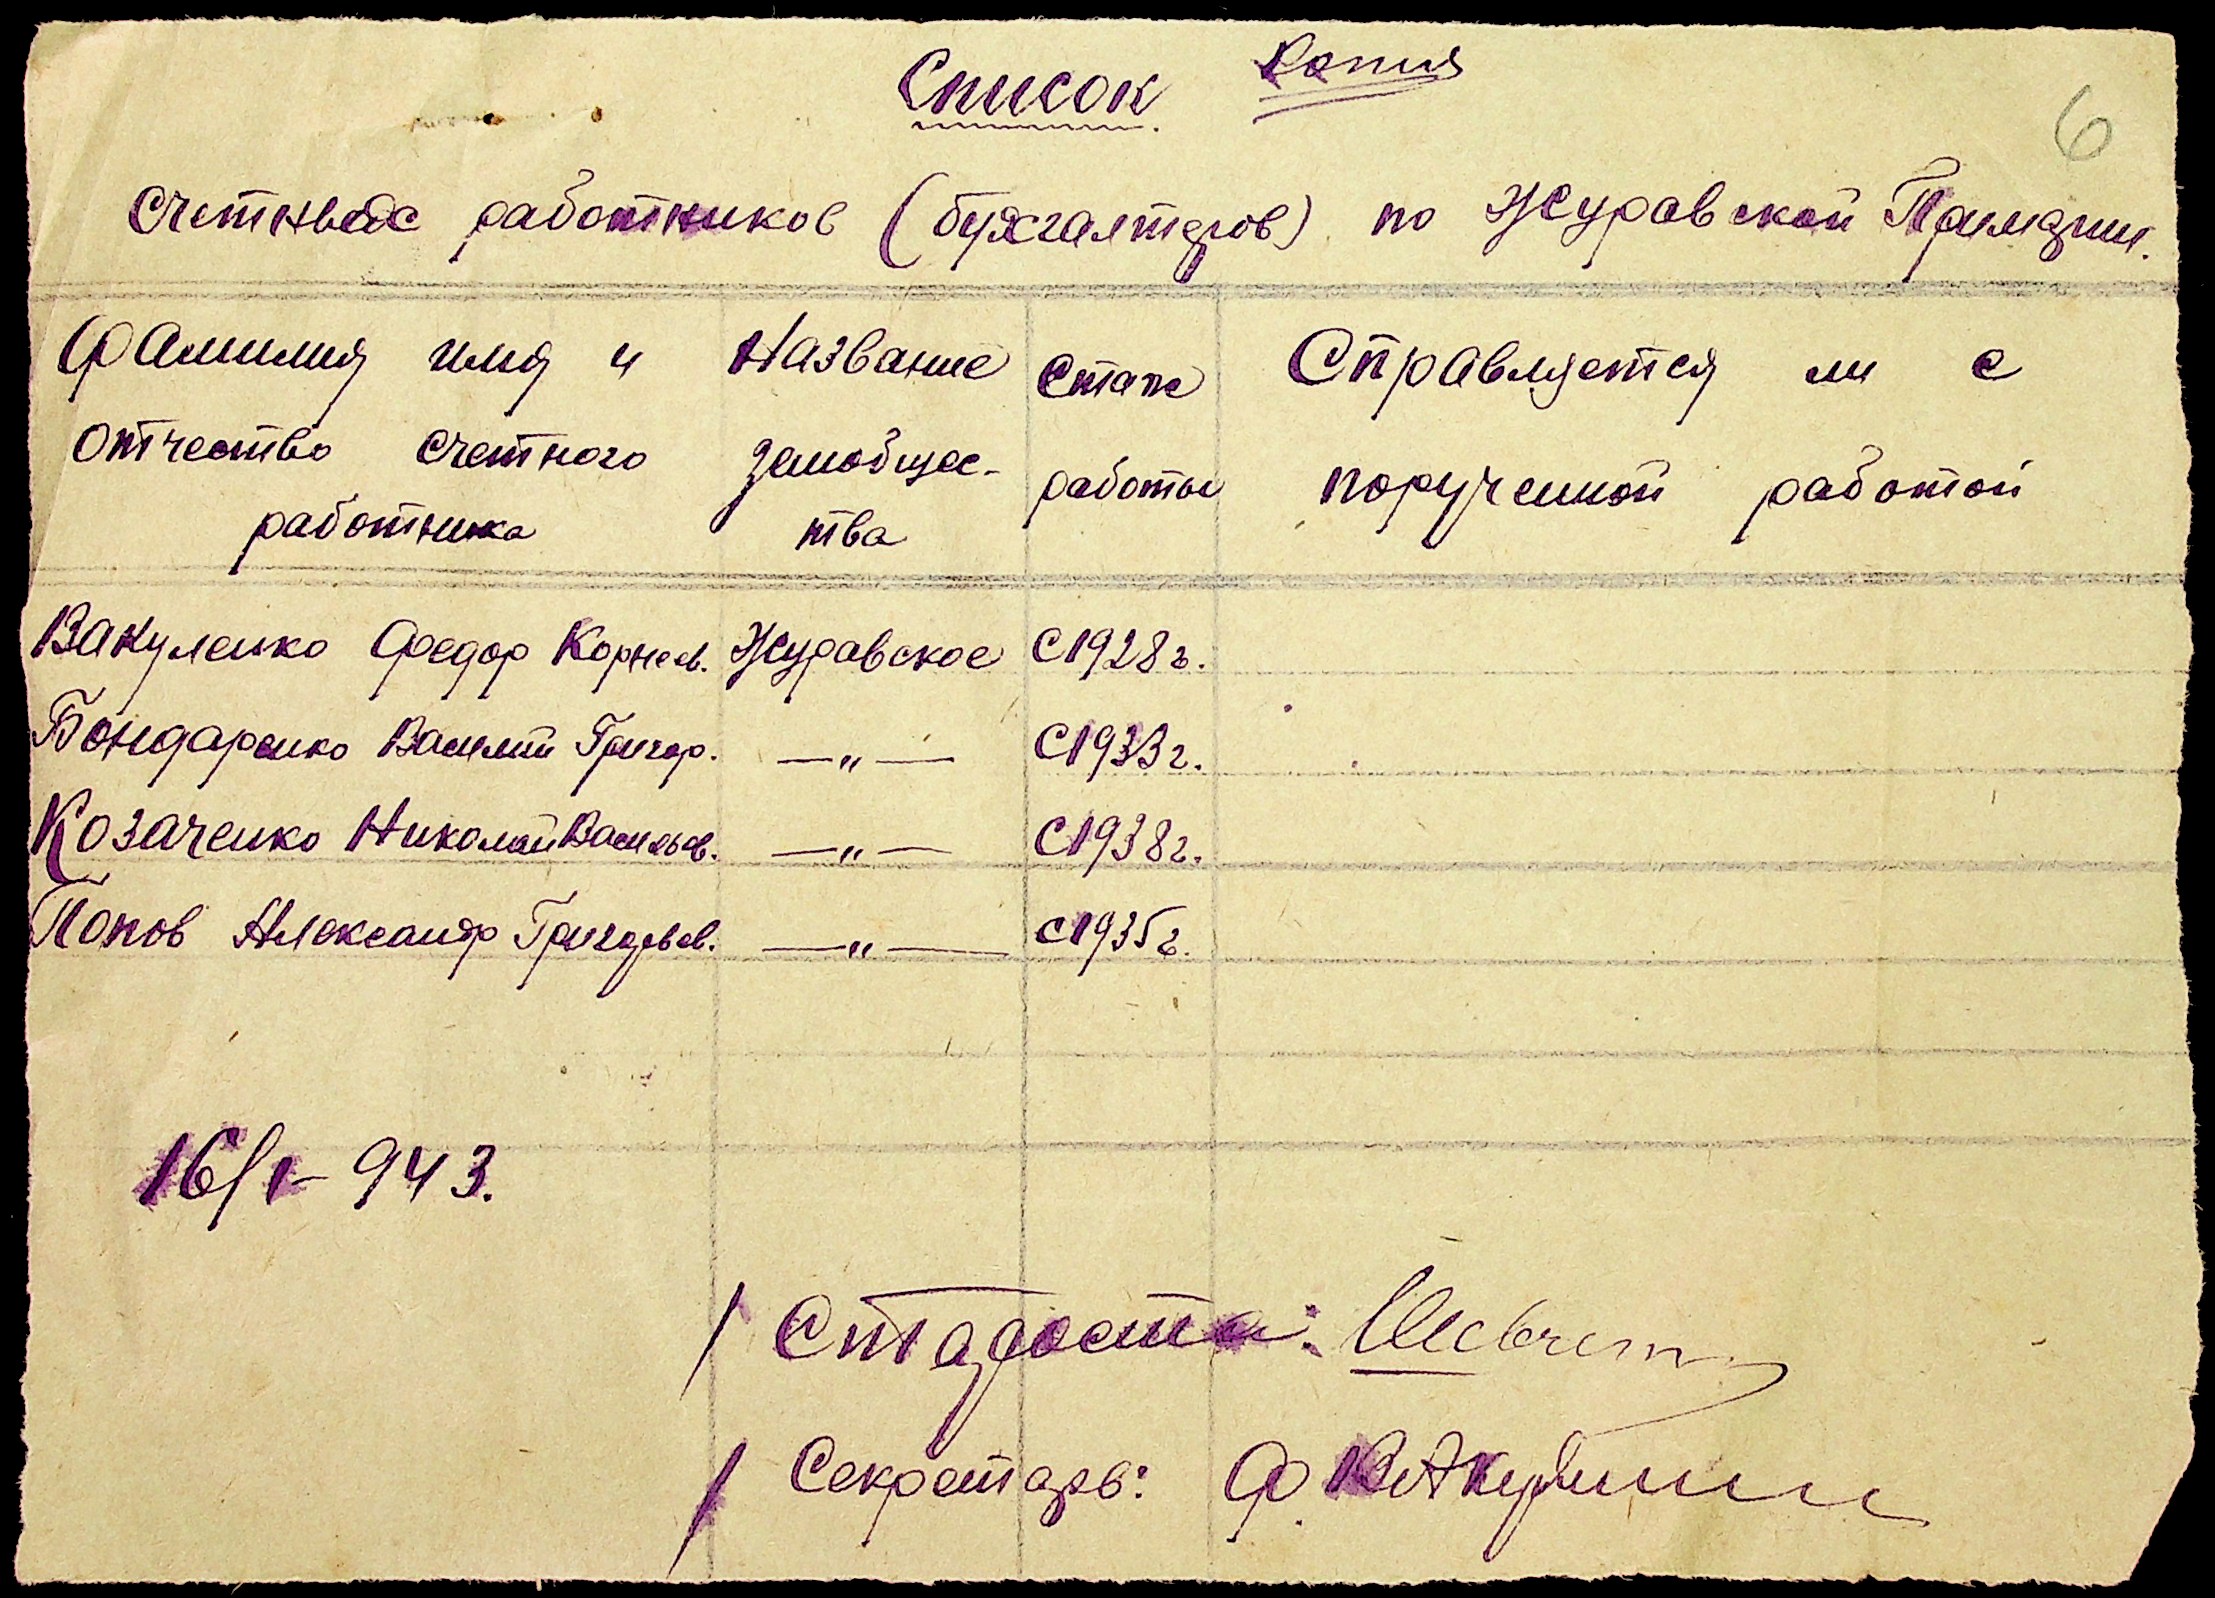 Список Копия
6
счетных работников (бухгалтеров) по Журавской
Фамилия имя и Название Стаж Справляется ли с
отчество счетного земобщес- работы порученной работой
работника тва
Вакуленко Федор Корнеев. Журавское С 1928 г.
Бондаренко Василий Григор. —"— С 1933 г.
Козаченко Николай Васильев. —"— С 1938 г.
Попов Александр Григорьев. —"— с 1935 г.
16/1-943.
Староста:
Секретарь: Ф.